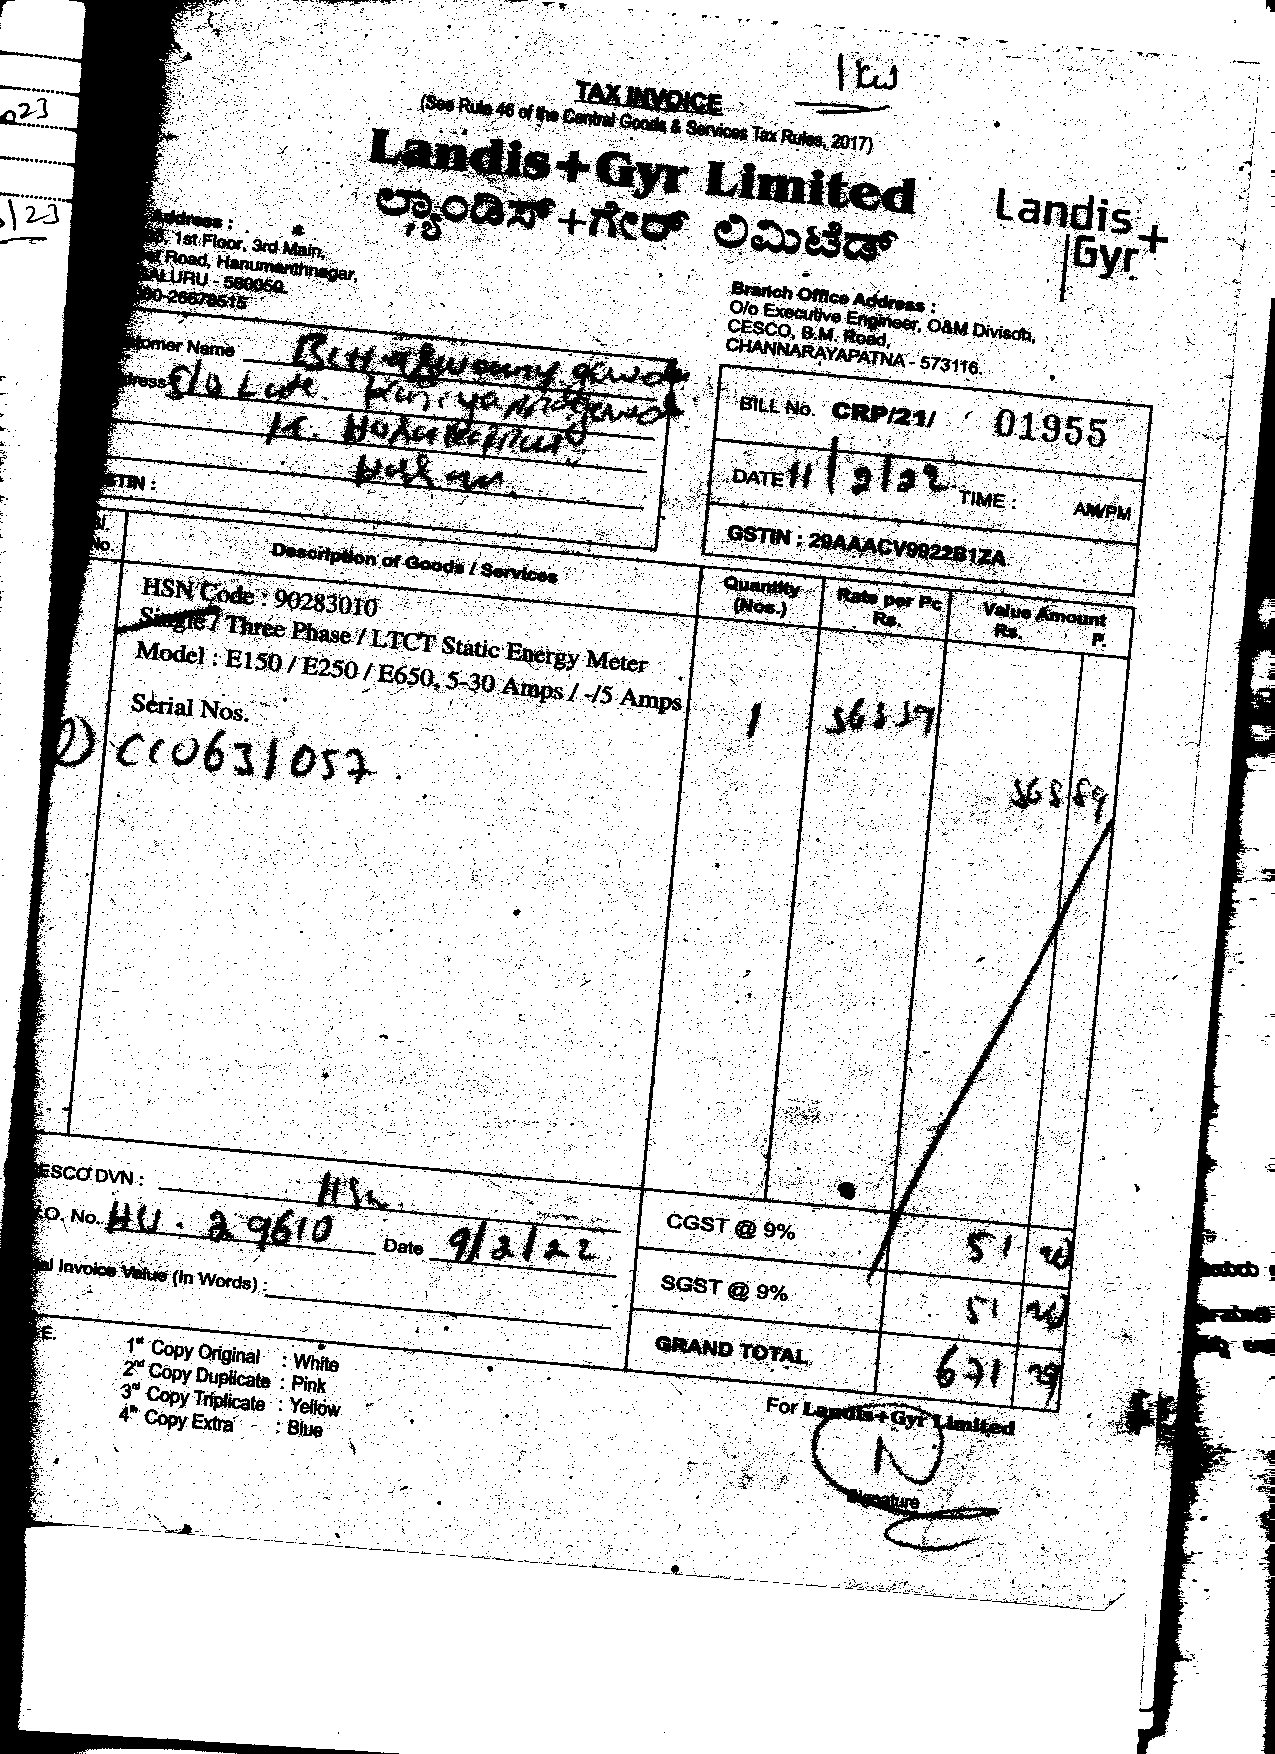 023
/23
1kw
TAX INVOICE
(See Rule 46 of the Central Goods & Services Tax Rules, 2017)
Landis+Gyr Limited
ಲ್ಯಾಂಡಿಸ್+ಗೇರ್ ಲಿಮಿಟೆಡ್
Landis+
Gyr
Address :
1st Floor, 3rd Main,
Road, Hanumanthnagar,
ALURU - 560050.
26678515
Branch Office Address :
O/o Executive Engineer, O&M Divison,
CESCO, B.M. Road,
CHANNARAYAPATNA - 573116.
omer Name
ress S/o Late.
STIN :
BILL No. CRP/21/ 01955
DATE 11/2/22 TIME : AM/PM
GSTIN : 29AAACV9922B1ZA
Sl. No. Description of Goods / Services Quantity (Nos.) Rate per Pc Rs. Value Amount Rs. P.
HSN Code : 90283010
Single / Three Phase / LTCT Static Energy Meter
Model : E150 / E250 / E650, 5-30 Amps / -/5 Amps
Serial Nos. 1
1) CC0631057
568 89
ESCO DVN : HSN
.O. No. HU. 29610 Date 9/2/22
al Invoice Value (In Words) :
CGST @ 9% 51 20
SGST @ 9% 51 20
GRAND TOTAL 671 29
E.
1st Copy Original : White
2nd Copy Duplicate : Pink
3rd Copy Triplicate : Yellow
4th Copy Extra : Blue
For Landis+Gyr Limited
Signature